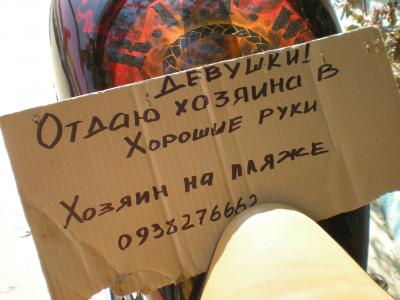 ДЕВУШКИ!
ОТДАЮ ХОЗЯИНА В
ХОРОШИЕ РУКИ
ХОЗЯИН НА ПЛЯЖЕ
0938276662